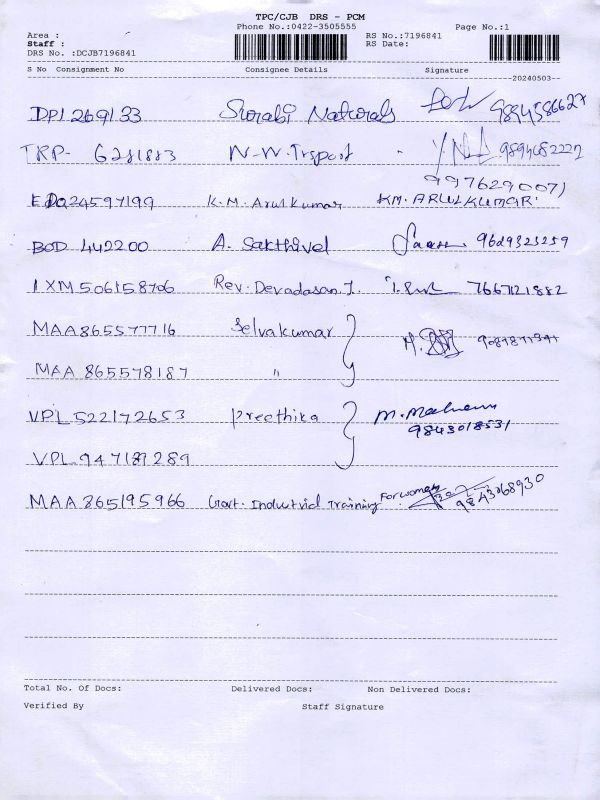 TPC/CJB DRS - PCM
Phone No.:0422-3505555
Page No.:1
Area :
Staff :
DRS No. :DCJB7196841
RS No.:7196841
RS Date:
S No Consignment No Consignee Details Signature
20240503--
DPI 269133 Surabi Naturals 9894586627
TRP- 6281883 N.W. Trsport - 9894082222
9976290071
EDQ24597199 K.M. Arulkumar KM. ARULKUMAR
BOD 442200 A. Sakthivel 9629323259
IXM 506158706 Rev. Devadasan. J. 7667121882
MAA865577716 Selvakumar
MAA 865578187 "
VPL522172653 Preethika
9843018531
VPL 947189289
MAA 865195966 Govt. Industrial Training For women 9843068930
Total No. Of Docs: Delivered Docs: Non Delivered Docs:
Verified By Staff Signature